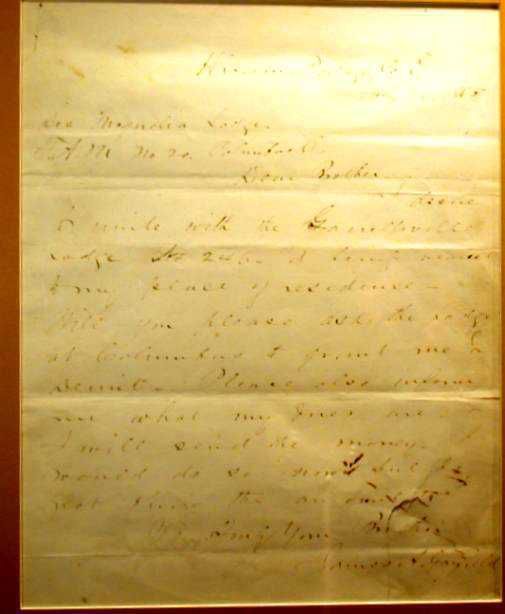 Hiram
Magnolia Lodge
No 20. Columbus O.
Dear Brother
I desire
to unite with the Garrettsville
Lodge No 246. it being nearest
to my place of residence -
Will you please ask the Lodge
at Columbus to grant me a
demit. Please also inform
me what my dues are
I will send the money. I
would do so now but do
not know the amount
Truly Your Brother
James A Garfield